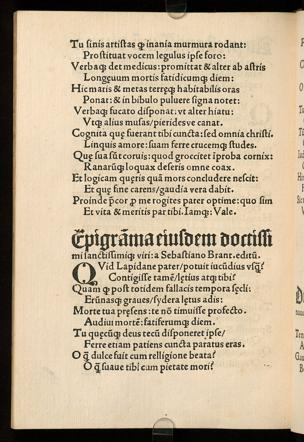 Tu sinis artistas ꝙ inania murmura rodant:
Prostituat vocem legulus ipse foro:
Verbaqꝫ det medicus: promittat & alter ab astris
Longęuum mortis fatidicumqꝫ diem:
Hic maris & metas terręqꝫ habitabilis oras
Ponat: & in bibulo puluere signa notet:
Verbaqꝫ fucato disponat vt alter hiatu:
Vtqꝫ alius musas/pierides ve canat.
Cognita que fuerant tibi cuncta: sed omnia christi.
Linquis amore: suam ferre crucemqꝫ studes.
Que sua sūt coruis: quod groccitet īproba cornix:
Ranarūqꝫ loquax deseris omne coax.
Et logicam quęris quā mors concludere nescit:
Et que fine carens/gaudia vera dabit.
Proinde p̄cor ꝓ me rogites pater optime: quo sim
Et vita & meritis par tibi. Iamqꝫ: Vale.
Epigrāma eiusdem doctissi
mi sanctissimiqꝫ viri: a Sebastiano Brant. editū.
Qvid Lapidane pater/potuit iucūdius vsqꝫ?
Contigisse tamē/lętius atqꝫ tibi?
Quam ꝙ post totidem fallacis tempora sęcli:
Erūnasqꝫ graues/sydera lętus adis:
Morte tua pręsens: te nō timuisse profecto.
Audiui mortē: fatiferumqꝫ diem.
Tu quęcūqꝫ deus tecū disponeret ipse/
Ferre etiam patiens cuncta paratus eras.
O ꝙ̄ dulce fuit cum relligione beata?
O ꝙ̄ suaue tibi cum pietate mori?